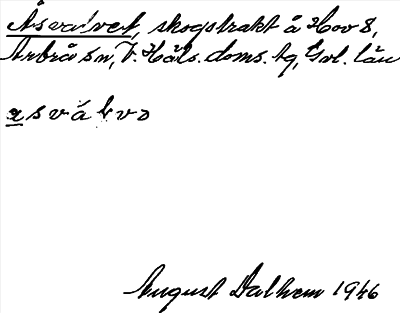 Åsvalvet, skogstrakt å Hov 8,
Arbrå sn, V. Häls. doms. tg, Gvl. län
August Dalhem 1946